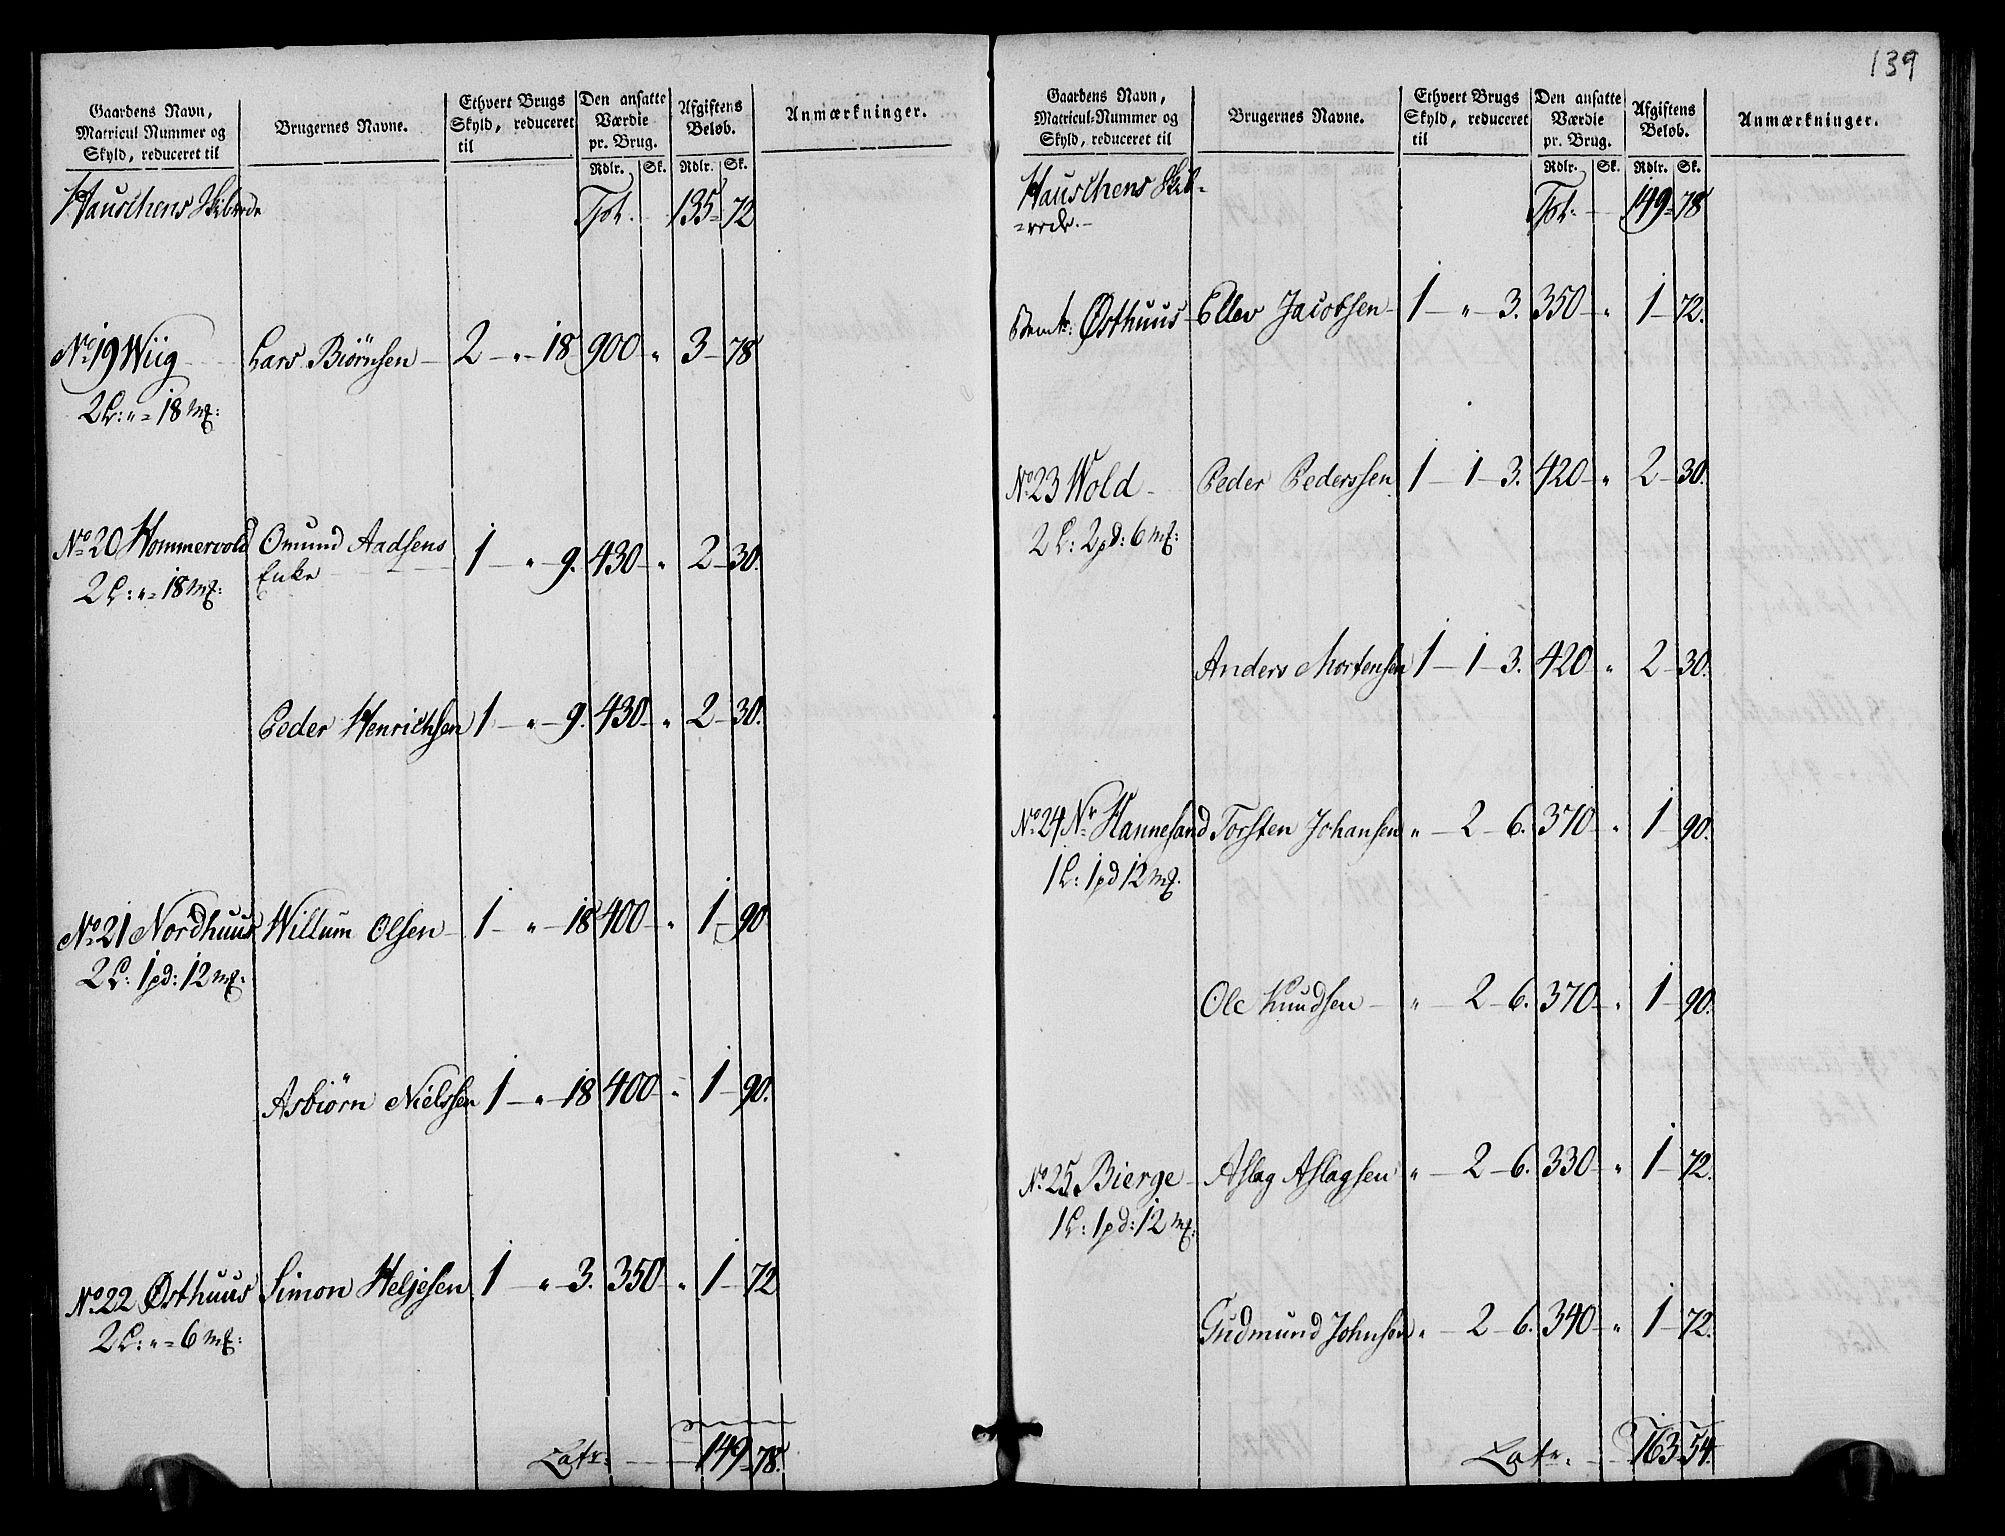 Gaardens Navn, Matricul Nummer og Skyld, reduceret til | Brugernes Navne. | Ethvert Brugs Skyld, reduceret til | Den ansatte Værdie pr. Brug. | Afgiftens Beløb. | Anmærkninger.
Rdlr. | Sk. | Rdlr. | Sk.
Hauschens Skibrede Tpt. 135 = 72
No 19 Wiig Lars Biørnsen 2 - " - 18 900 " 3 - 78
2 L: " = 18 mk:
No 20 Hommervold Omund Aadsens 1 - " - 9. 430 " 2 - 30.
2 L: " = 18 mk: Enke
Peder Henrichsen 1 - " - 9. 430 " 2 - 30.
No 21 Nordhuus Willum Olsen 1 - " - 18 400 " 1 - 90
2 L: 1 pd: 12 mk:
Asbiørn Nielssen 1 - " - 18 400 " 1 - 90.
No 22 Østhuus Simon Heljesen 1 - " - 3. 350 " 1 - 72
2 L: " = 6 mk:
Latr: 149 = 78.
139
Gaardens Navn, Matricul-Nummer og Skyld, reduceret til | Brugernes Navne. | Ethvert Brugs Skyld, reduceret til | Den ansatte Værdie pr. Brug. | Afgiftens Beløb. | Anmærkninger.
Rdlr. | Sk. | Rdlr. | Sk.
Hauschens Skib- Tpt. 149 = 78
=rede.
Østhuus Ellev Jacobsen 1 - " - 3. 350 " 1 - 72.
No 23 Wold Peder Pederssen 1 - 1 - 3. 420 " 2 - 30.
2 L: 2 pd: 6 mk:
Anders Mortensen 1 - 1 - 3. 420 " 2 - 30.
No 24 Nr Hannesand Torsten Johansen " - 2 - 6. 370 " 1 - 90.
1 L: 1 pd 12 mk.
Ole Knudsen " - 2 - 6. 370 " 1 - 90.
No 25 Bierge Aslag Aslagsen " - 2 - 6. 330 " 1 - 72.
1 L: 1 pd: 12 mk:
Gudmund Johnsen " - 2 - 6. 340 " 1 - 72.
Latr. 163 54.